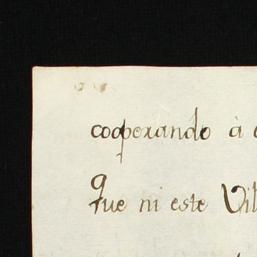 cooperando à
que ni este Vil